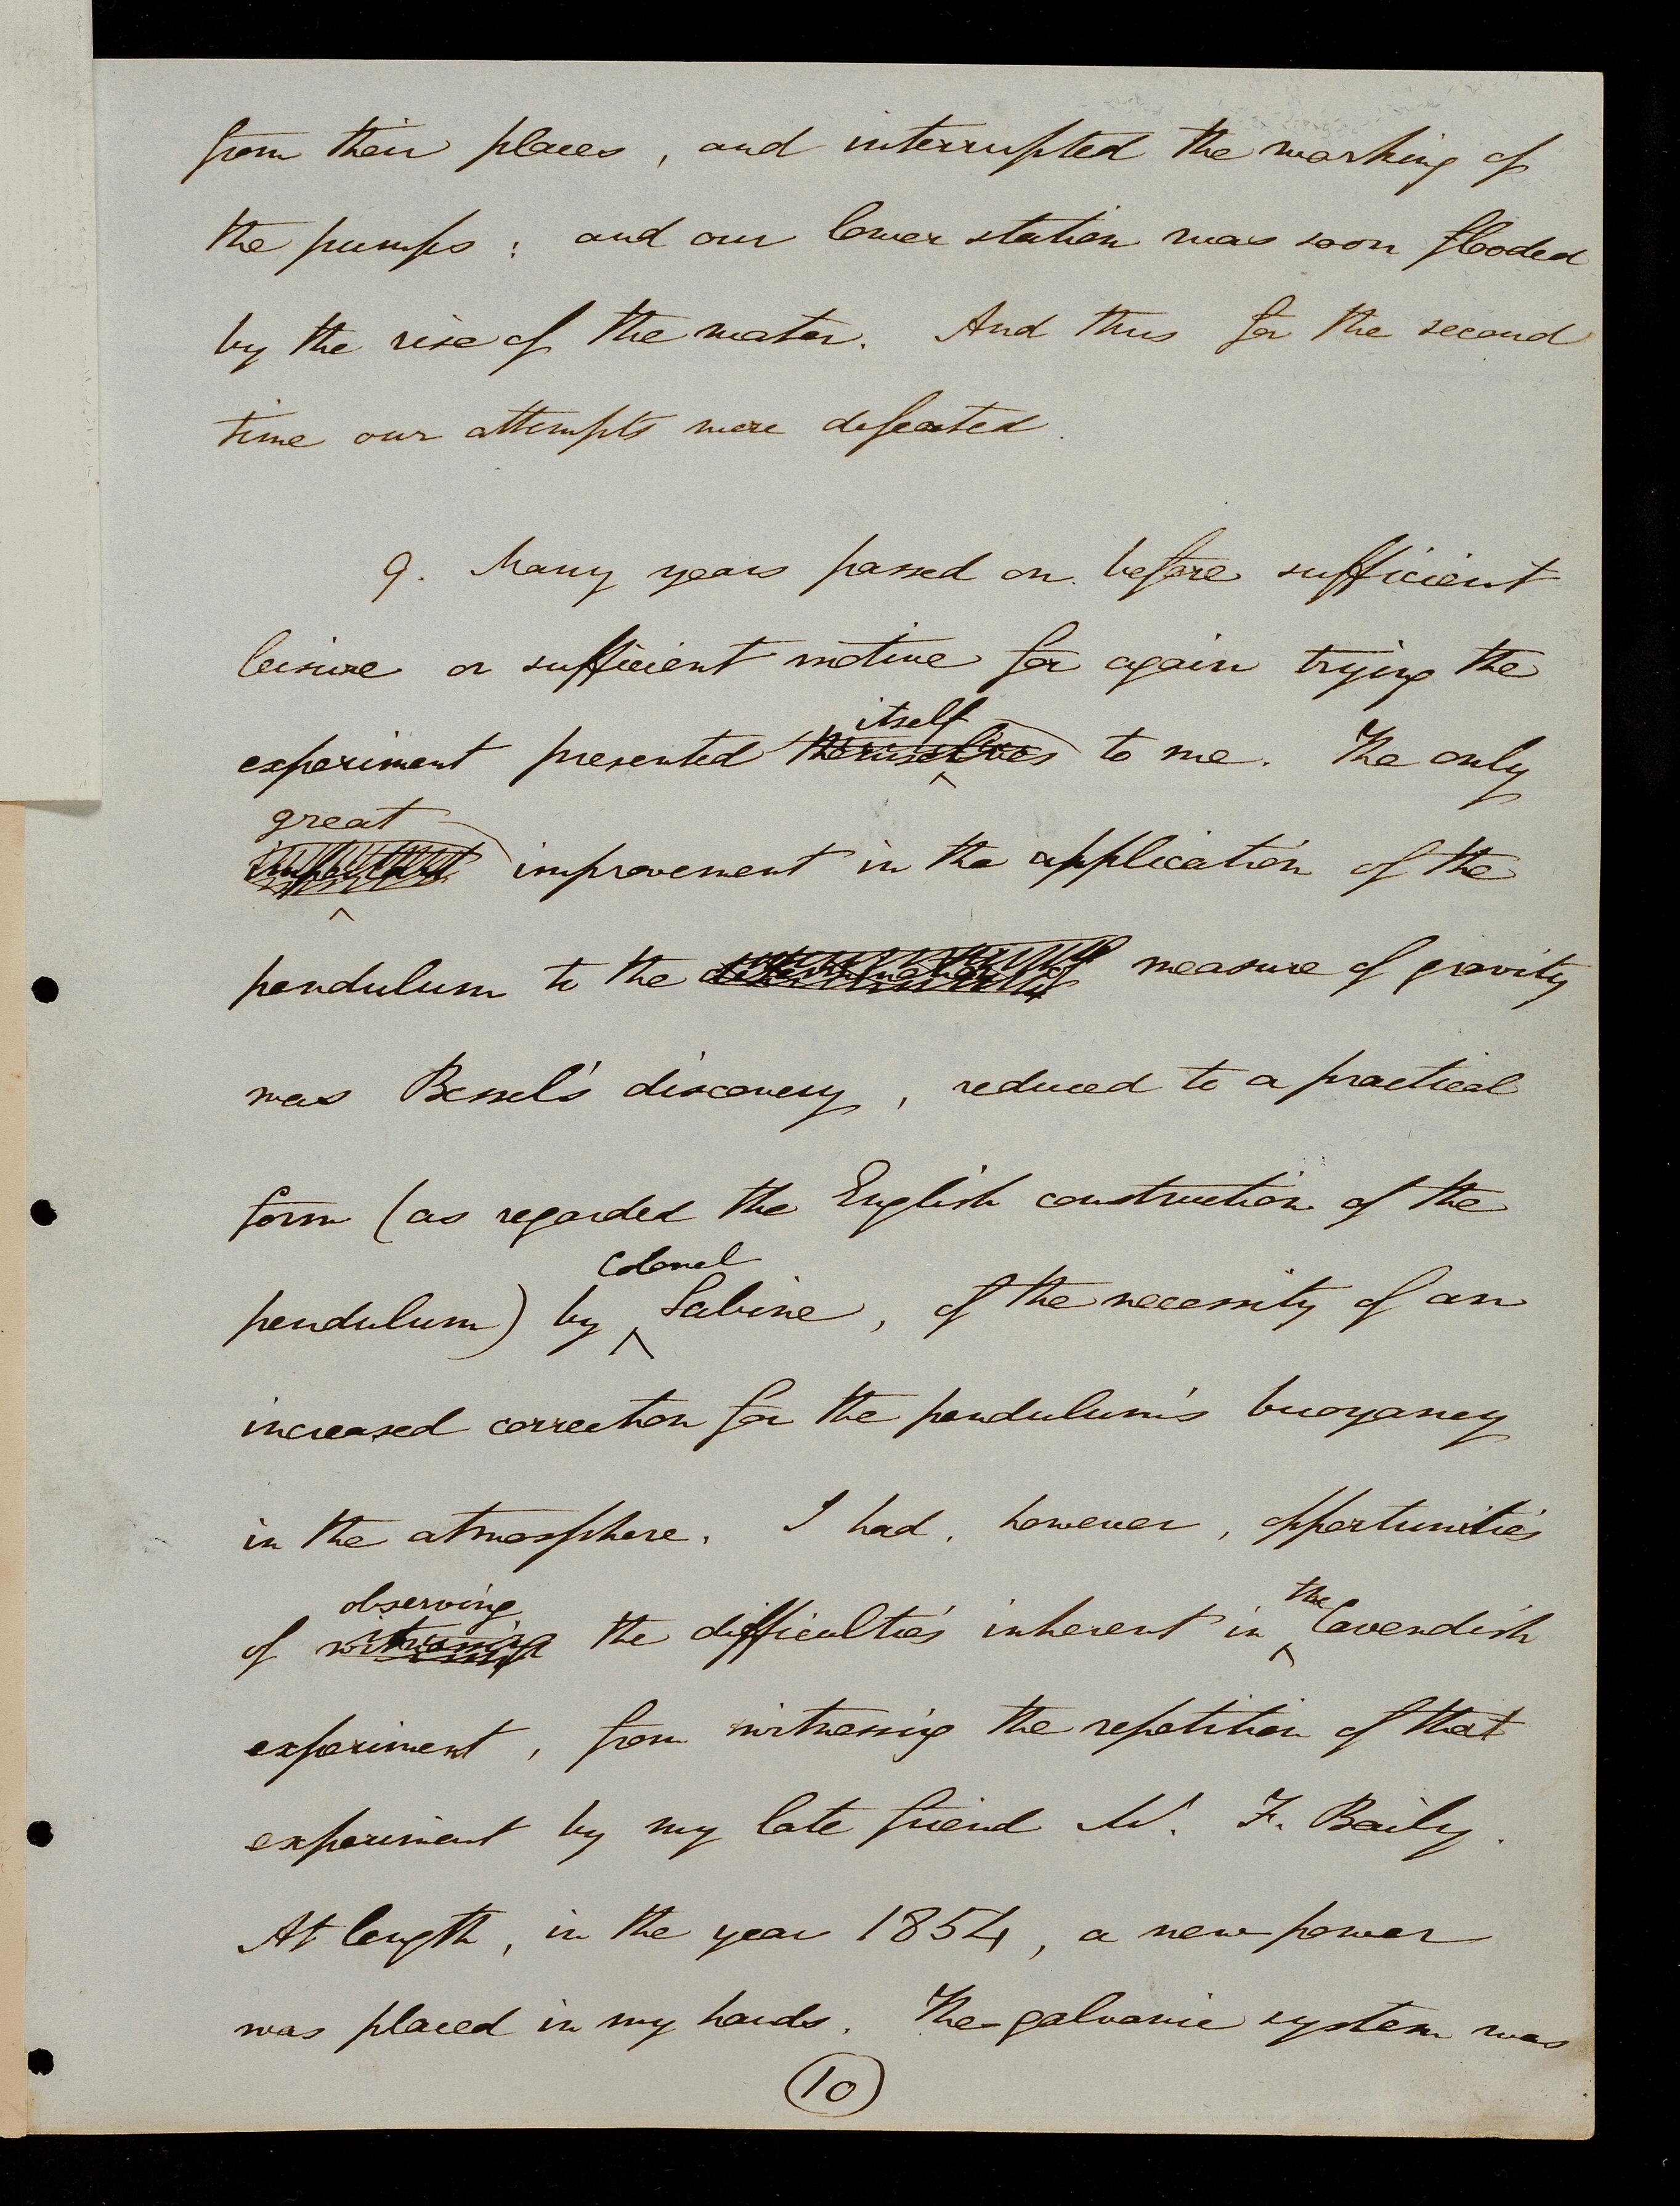 from their places, and interrupted the working of
the pumps: and our lower station was soon flooded
by the rise of the water. And thus for the second
time our attempts were defeated.
9. Many years passed on before sufficient
leisure or sufficient motive for again trying the
itself
experiment presented themselves to me. The only
great
important improvement in the application of the
pendulum to the determination of measure of gravity
was Bessel's discovery, reduced to a practical
form (as regarded the English construction of the
Colonel
pendulum) by Sabine, of the necessity of an
increased correction for the pendulum's buoyancy
in the atmosphere. I had, however, opportunities
observing the
of witnessing the difficulties inherent in Cavendish
experiment, from witnessing the repetition of that
experiment by my late friend Mr. F. Baily.
At length, in the year 1854, a new power
was placed in my hands. The galvanic system was
10